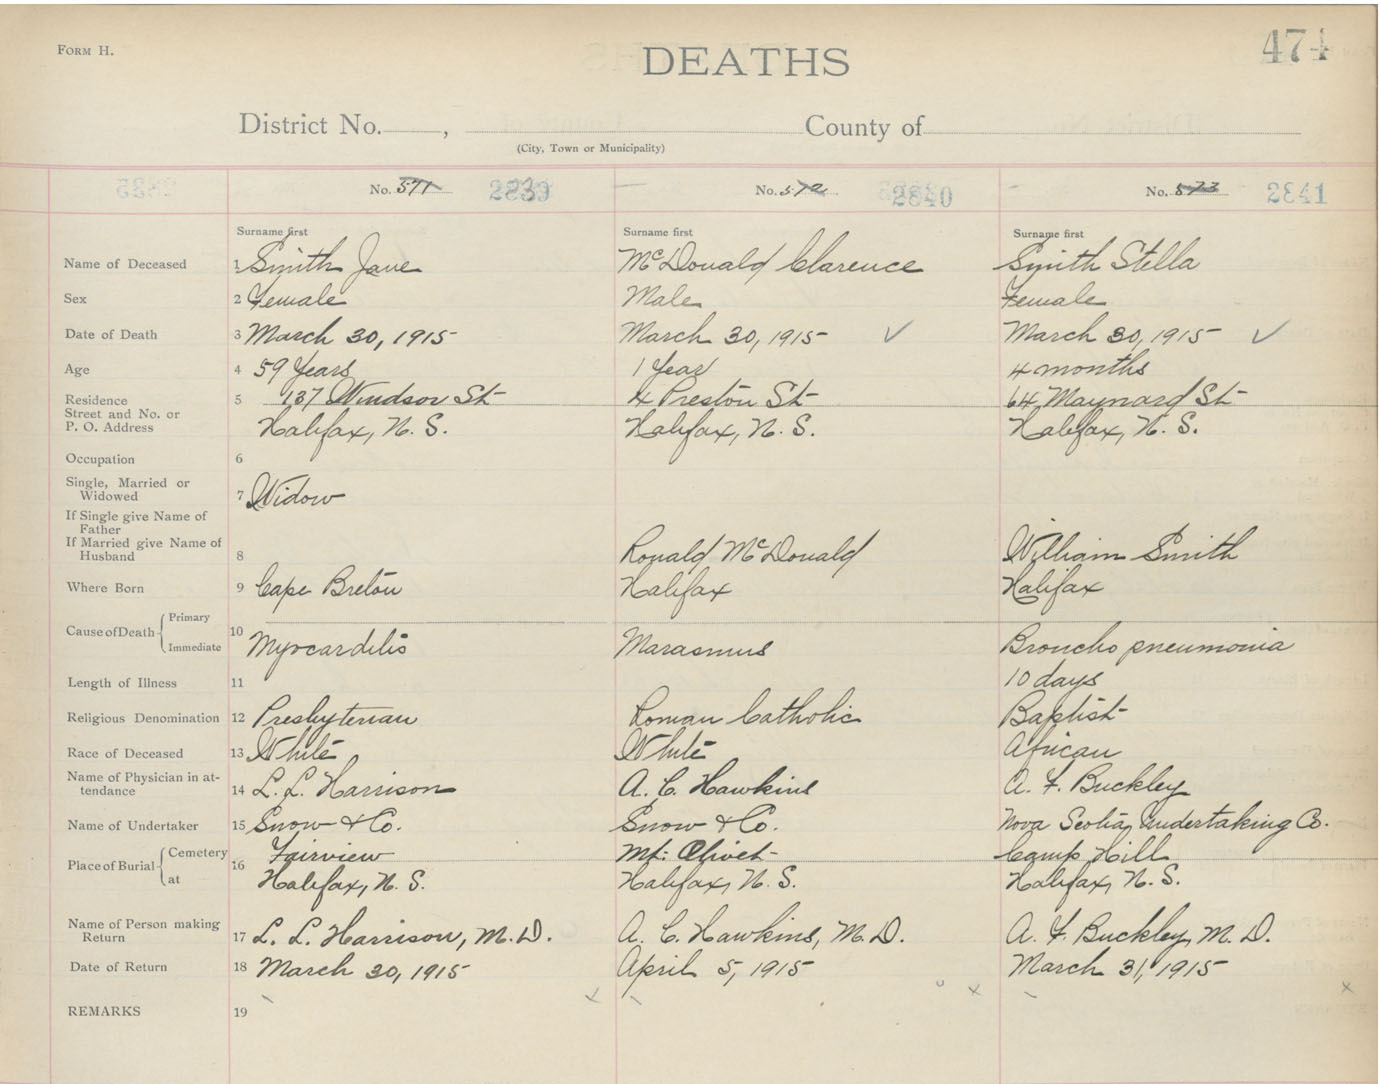 Form H.
DEATHS
474
District No. , County of
(City, Town or Municipality)
No. 571 2839
No. 572 2840
No. 573 2841
Surname first Surname first Surname first
Name of Deceased 1 Smith Jane McDonald Clarence Smith Stella
Sex 2 Female Male Female
Date of Death 3 March 30, 1915 March 30, 1915 ✓ March 30, 1915 ✓
Age 4 59 Years 1 Year 4 months
Residence 5 137 Windsor St 4 Preston St 64 Maynard St
Street and No. or
P. O. Address Halifax, N. S. Halifax, N. S. Halifax, N. S.
Occupation 6
Single, Married or
Widowed 7 Widow
If Single give Name of
Father
If Married give Name of
Husband 8 Ronald McDonald William Smith
Where Born 9 Cape Breton Halifax Halifax
Cause of Death { Primary
Immediate 10 Myocarditis Marasmus Broncho pneumonia
Length of Illness 11 10 days
Religious Denomination 12 Presbyterian Roman Catholic Baptist
Race of Deceased 13 White White African
Name of Physician in at-
tendance 14 L. L. Harrison A. C. Hawkins A. F. Buckley
Name of Undertaker 15 Snow & Co. Snow & Co. Nova Scotia Undertaking Co.
Place of Burial { Cemetery 16 Fairview Mt. Olivet Camp Hill
at Halifax, N. S. Halifax, N. S. Halifax, N. S.
Name of Person making
Return 17 L. L. Harrison, M. D. A. C. Hawkins, M. D. A. F. Buckley, M. D.
Date of Return 18 March 30, 1915 April 5, 1915 March 31, 1915
REMARKS 19